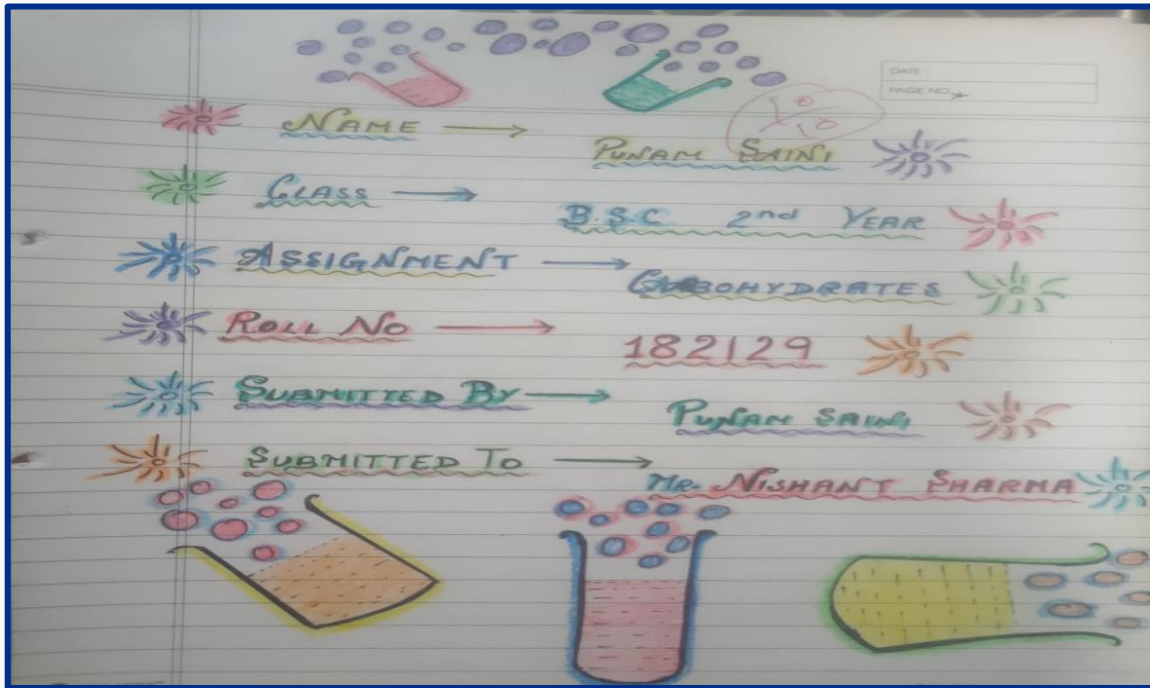 DATE :
PAGE NO.
10
10
NAME → PUNAM SAINI
CLASS → B.S.C 2nd YEAR
ASSIGNMENT → CARBOHYDRATES
ROLL NO → 182129
SUBMITTED BY → PUNAM SAINI
SUBMITTED TO → MR. NISHANT SHARMA